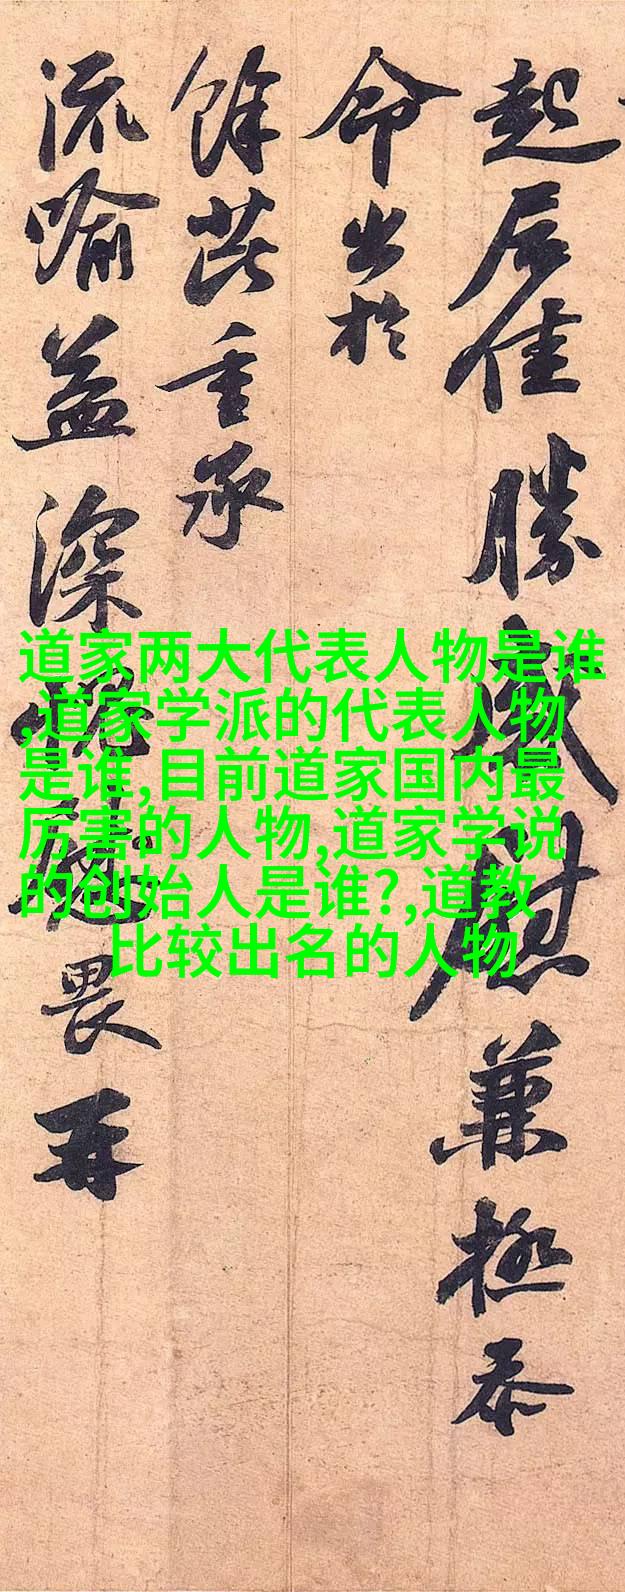 起居佳勝感慰兼極忝
命出於
餘芘重承
流喻益深愧畏再
道家两大代表人物是谁
,道家学派的代表人物
是谁,目前道家国内最
厉害的人物,道家学说
的创始人是谁?,道教
比较出名的人物